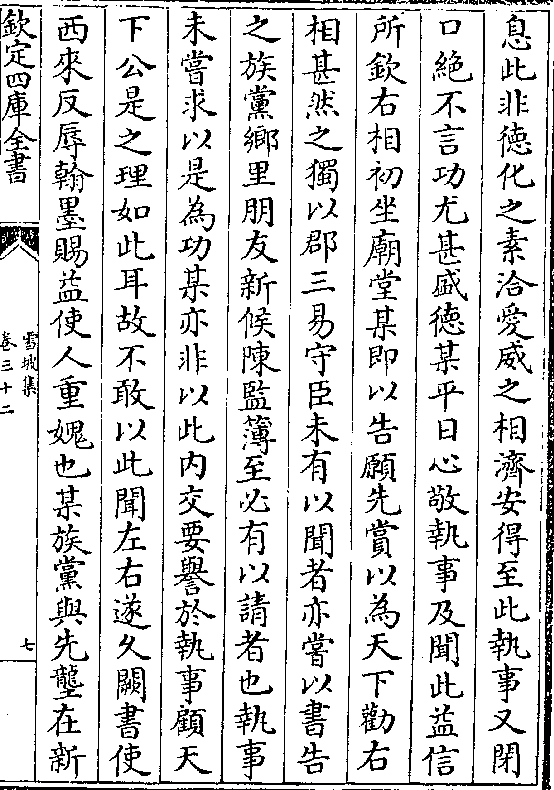 息此非德化之素洽愛威之相濟安得至此執事又閉
口絶不言功尤甚盛德某平日心敬執事及聞此益信
所欽右相初坐廟堂某即以告願先賞以為天下勸右
相甚然之獨以郡三易守臣未有以聞者亦嘗以書告
之族黨鄉里朋友新候陳監簿至必有以請者也執事
未嘗求以是為功某亦非以此内交要譽於執事顧天
下公是之理如此耳故不敢以此聞左右遂久闕書使
西來反辱翰墨賜益使人重媿也某族黨與先壟在新
欽定四庫全書
雪坡集
卷三十二
七